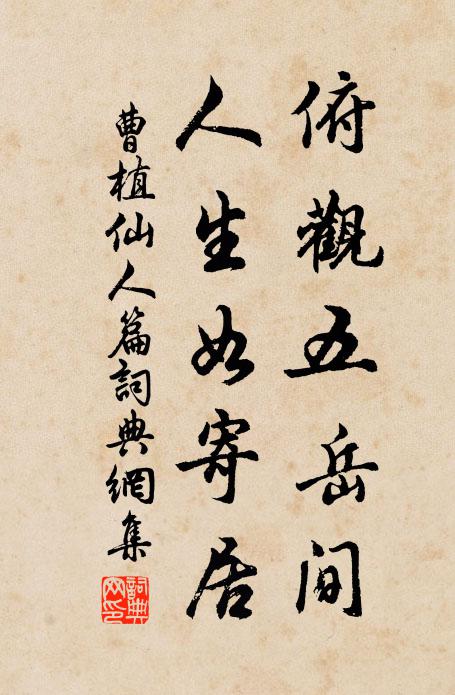 俯觀五岳間
人生如寄居
曹植仙人篇詞典網集
詞典網印